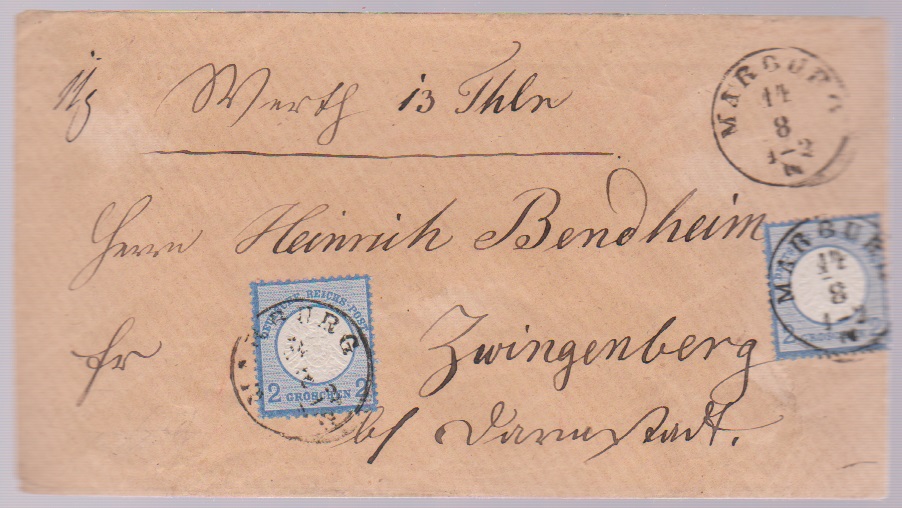 Werth 13 Thlr
MARBURG
14
8
1-2
N
Herrn Heinrich Bendheim
MARBURG
14
8
1-2
N
2 2
fr Zwingenberg
DEUTSCHE REICHS-POST
MARBURG
2 GROSCHEN 2
b/ Darmstadt.